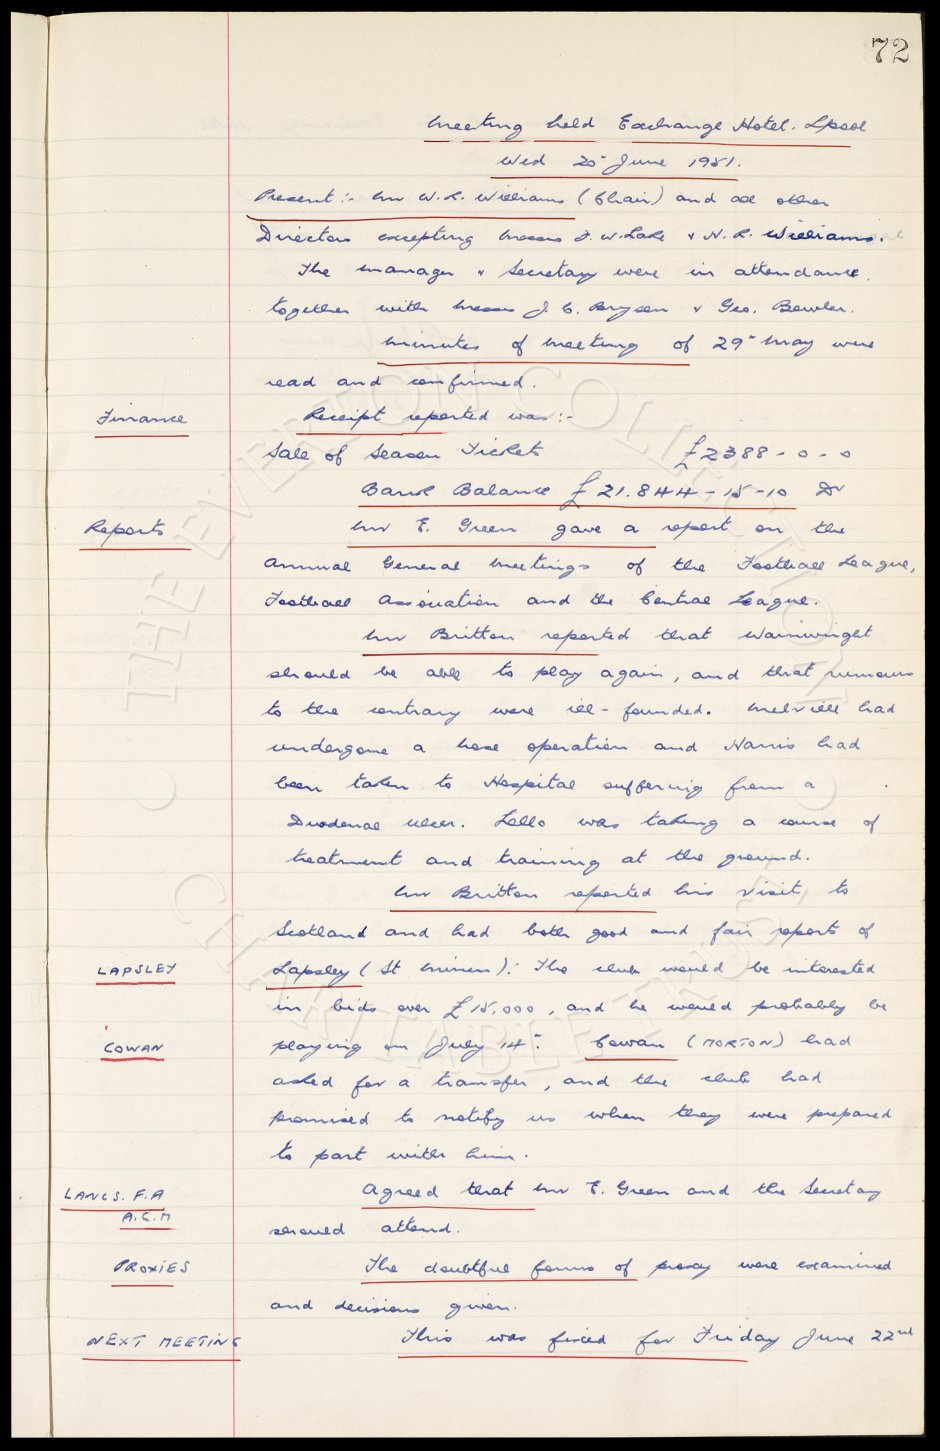 72
Meeting held Exchange Hotel. Lpool
Wed 20" June 1951.
Present:- Mr W.R. Williams (Chair) and all other
Directors excepting Messrs F.W. Lake & N.R. Williams.
The manager & Secretary were in attendance
together with Messrs J.C. Bryson & Geo. Bowler.
Minutes of meeting of 29" May were
read and confirmed.
Finance Receipt reported was:-
Sale of Season Tickets £2388-0-0
Bank Balance £21.844-15-10 Dr
Reports Mr E. Green gave a report on the
Annual General Meetings of the Football League,
Football Association and the Central League.
Mr Britton reported that Wainwright
should be able to play again, and that rumours
to the contrary were ill-founded. Melville had
undergone a nose operation and Harris had
been taken to Hospital suffering from a
Duodenal ulcer. Lello was taking a course of
treatment and training at the ground.
Mr Britton reported his visit to
Scotland and had both good and fair reports of
LAPSLEY Lapsley (St Mirren). The club would be interested
in bids over £15,000, and he would probably be
COWAN playing on July 14". Cowan (MORTON) had
asked for a transfer, and the club had
promised to notify us when they were prepared
to part with him.
LANCS. F.A Agreed that Mr E. Green and the Secretary
A.G.M should attend.
PROXIES The doubtful forms of proxy were examined
and decisions given.
NEXT MEETING This was fixed for Friday June 22nd
© THE EVERTON COLLECTION
CHARITABLE TRUST